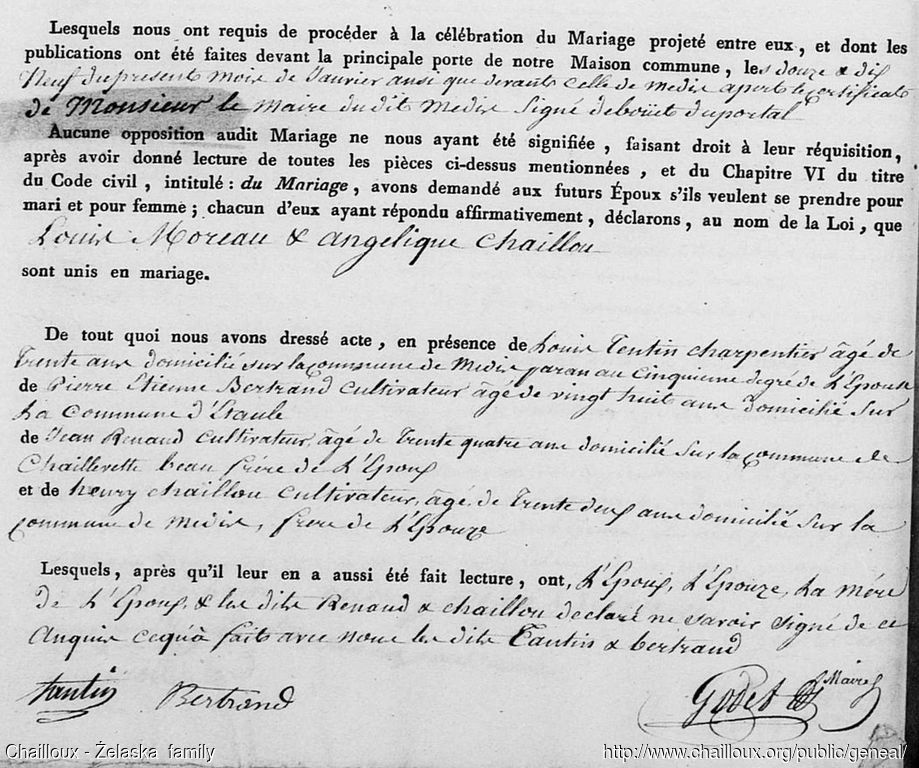 Lesquels nous ont requis de procéder à la célébration du Mariage projeté entre eux, et dont les
publications ont été faites devant la principale porte de notre Maison commune, les douze & dix
Neuf du present mois de Janvier ansi que devants celle de medis apert le certificats
de Monsieur le maire du dit medis Signé deboüet duportal
Aucune opposition audit Mariage ne nous ayant été signifiée, faisant droit à leur réquisition,
après avoir donné lecture de toutes les pièces ci-dessus mentionnées, et du Chapitre VI du titre
du Code civil, intitulé : du Mariage, avons demandé aux futurs Époux s'ils veulent se prendre pour
mari et pour femme ; chacun d'eux ayant répondu affirmativement, déclarons, au nom de la Loi, que
Louis Moreau & angelique chaillou
sont unis en mariage.
De tout quoi nous avons dressé acte, en présence de Louis Tentin charpentier âgé de
Trente ans domicilié sur la commune de Medis paran au Cinquieme degré de L'Epouse
de Pierre Etienne Bertrand Cultivateur âgé de vingt huit ans domicilié Sur
La Commune d'Etaule
de Jean Renaud Cultivateur, âgé de Trente quatre ans domicilié Sur la commune de
Chaillevette beau frére de L'Epoux
et de henry chaillou Cultivateur, âgé de Trente deux ans domicilié Sur la
Commune de medis, frere de L'Epouze
Lesquels, après qu'il leur en a aussi été fait lecture, ont, L'Epoux, L'Epouze, La mére
de L'Epoux, & les dits Renaud & chaillou declaré ne Savoir Signé de ce
Anquis cequ'à faits avec nous les dits Tantin & bertrand
tantin Bertrand Godet Maire
Chailloux - Żelaska family
http://www.chailloux.org/public/geneal/